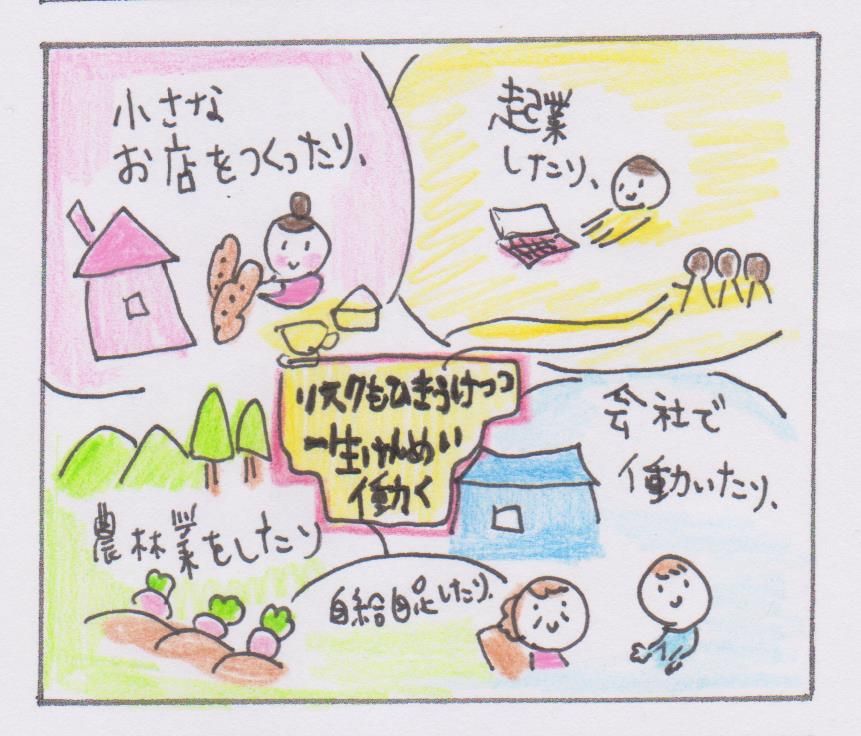 小さな
お店をつくったり、
起業
したり、
リスクもひきうけつつ
一生けんめい
働く
会社で
働いたり、
農林業をしたり
自給自足したり、